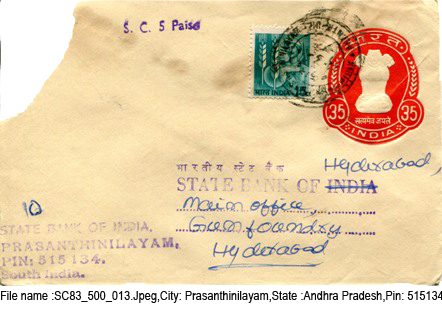 S. C. 5 Paise
भारत INDIA 15
भारत
35 35
सत्यमेव जयते
INDIA
भारतीय स्टेट बैंक
Hyderabad,
STATE BANK OF INDIA
Main office
Gunfoundry
Hyderabad
10
STATE BANK OF INDIA,
PRASANTHINILAYAM,
PIN: 515 134.
South India.
File name :SC83_500_013.Jpeg,City: Prasanthinilayam,State :Andhra Pradesh,Pin: 515134